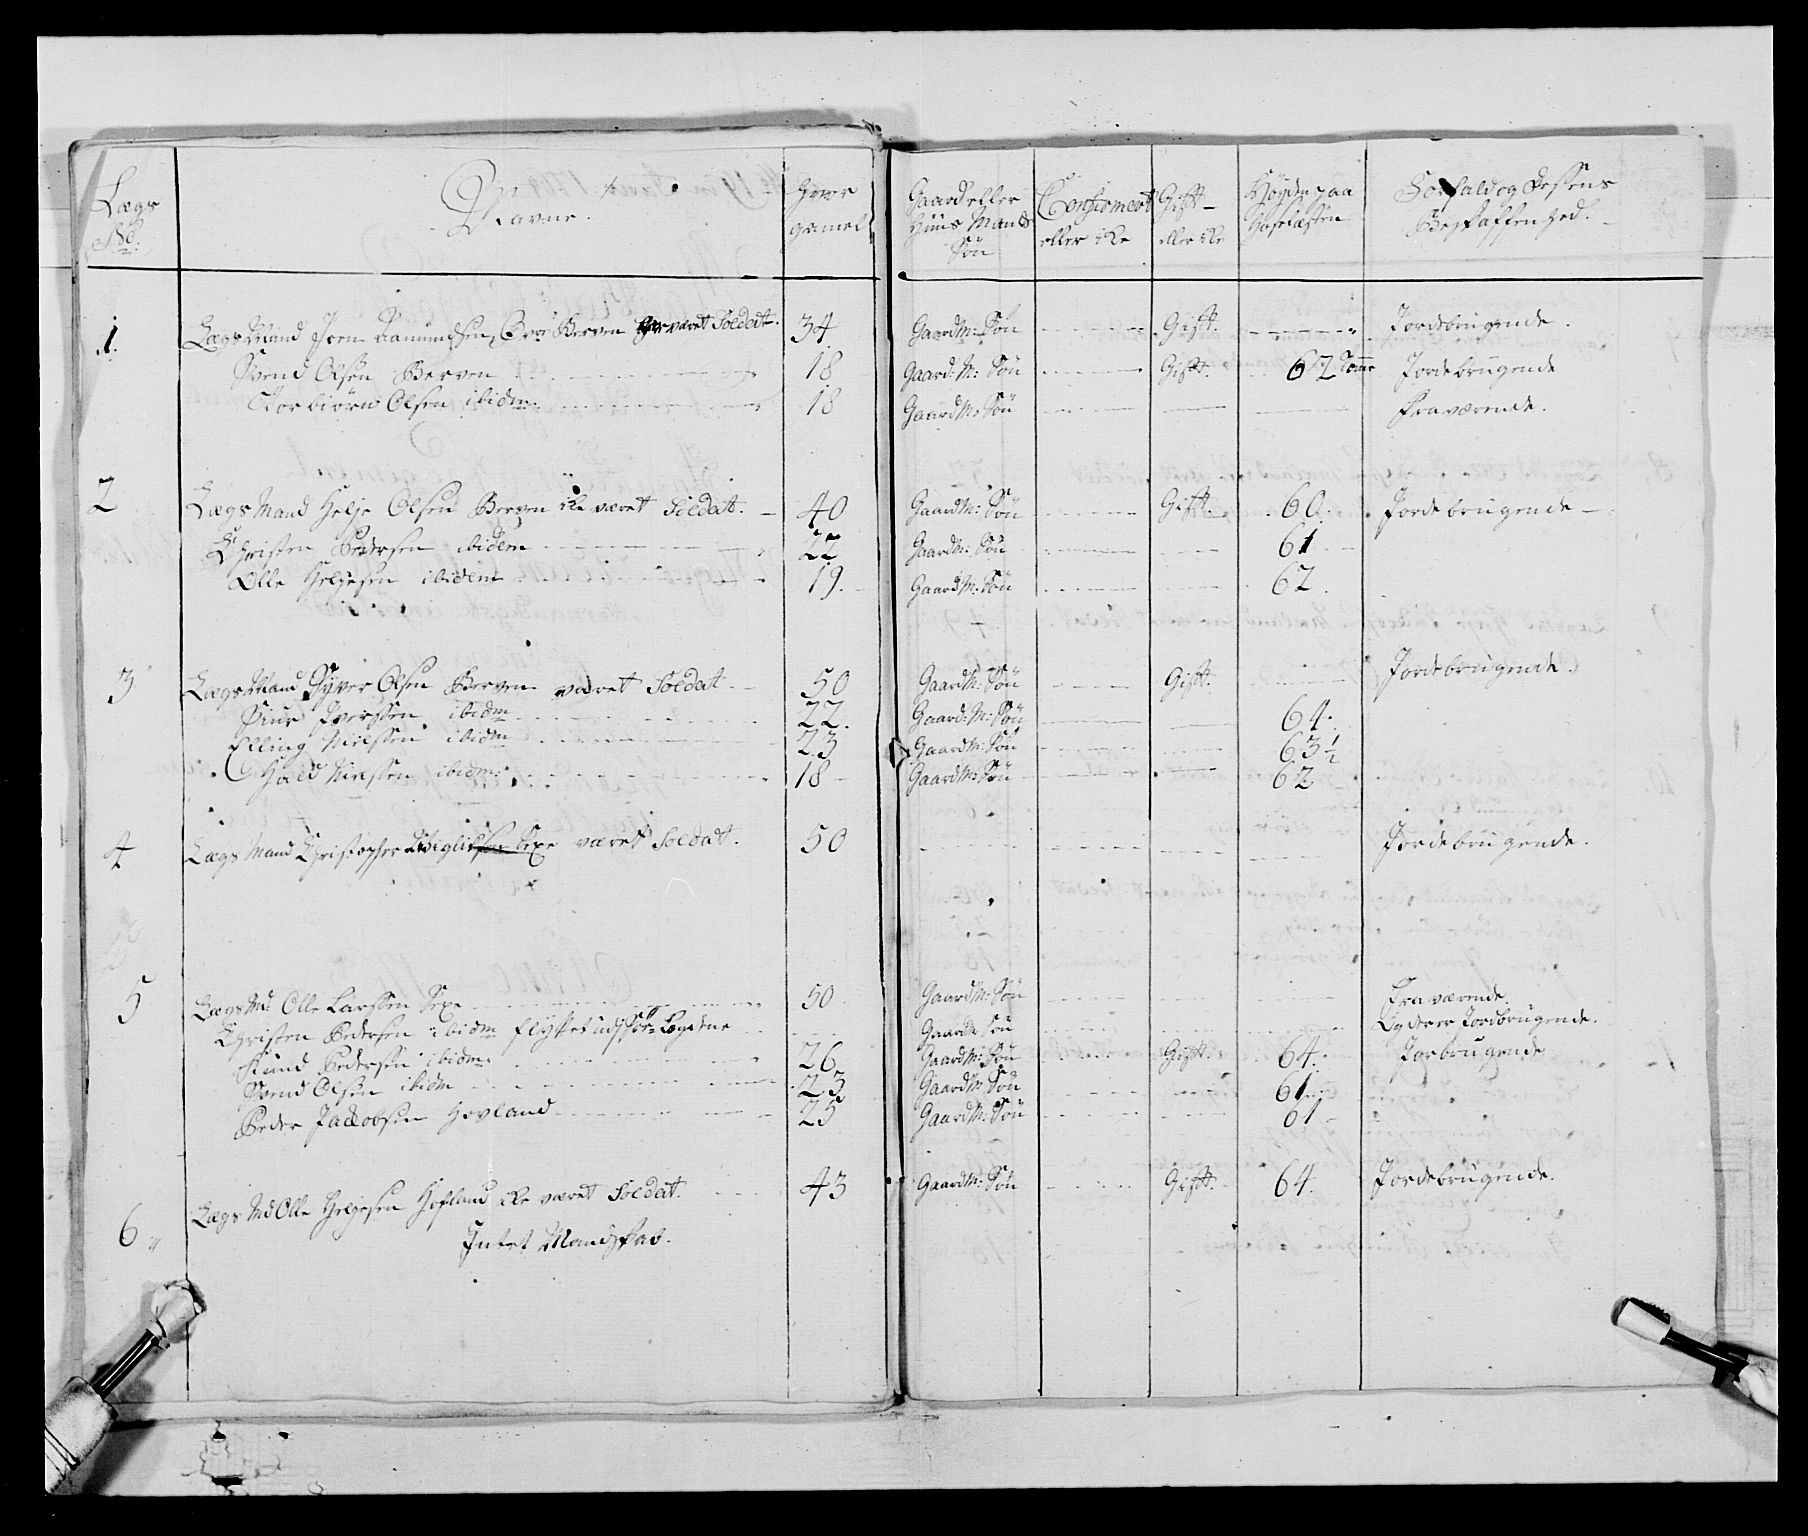 Lægs No. Navne. Hvor gamel Gaard eller Huus Mands Søn Confirmert eller ike Gift eller ike Høyden paa Hosefæsten Forfald og dessens Beskaffenhed.
1. Lægs Mand Joen Aamundsen Øvr Berven har været Soldat. 34. Gaard M: Søn Gift. Jordebrugende.
Svend Olsen Berven 18 Gaard: M: Søn Gift. 62 Tome Jordebrugende
Torbiørn Olsen ibidm 18 Gaard M: Søn Fraværende.
2 Lægs Mand Helje Olsen Berven ike været Soldat. 40 Gaard M: Søn Gift. 60. Jordebrugende
Christen Pedersen ibidem 22 Gaard M: Søn 61
Olle Helgesen ibidem 19. Gaard M: Søn 62.
3 Lægs Mand Syver Olsen Berven været Soldat 50 Gaard M: Søn Gift. Jordebrugende.
Siur Iverssen ibidm 22. Gaard: M: Søn 64.
Elling Nielssen ibidm 23 Gaard M: Søn 63½
Nielssen ibidm: 18 Gaard M: Søn 62
4 Lægs Mand Christopher Sexe været Soldat. 50 Jordebrugende.
5 Lægs Md: Olle Larssen Sexe 50 Gaard M: Søn Fraværende.
Christen Pedersen ibidm flyttet ud Lægdene Gaard M Søn Lægdet er Jordbrugende.
Amund Pedersen ibidm: 26 Gaard M: Søn Gift. 64. Jorbrugende
Svend Olsen ibidm 23 Gaard M: Søn 61
Peder Jackobsen Hovland 25 Gaard M: Søn 61
6 Lægs Md Olle Helgesen Hofland ike været Soldat. 43 Gaard M: Søn Gift. 64. Jordebrugende.
Intet Mandskab.